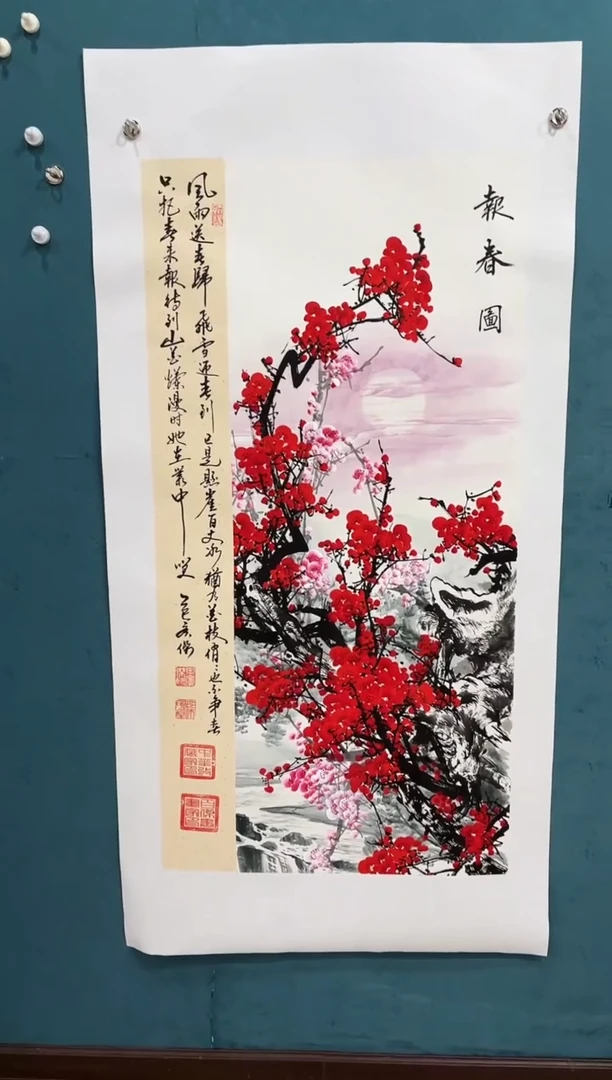 報春圖
風雨送春歸飛雪迎春到已是懸崖百丈冰猶有花枝俏〻也不爭春
只把春來報待到山花爛漫时她在叢中笑